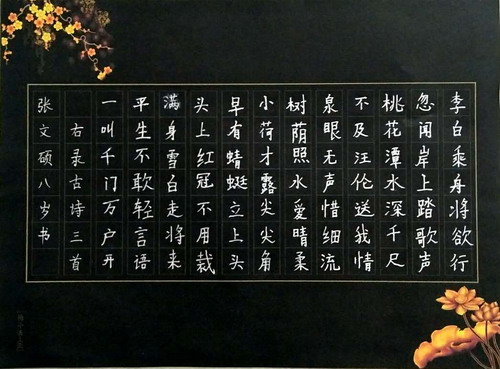 李白乘舟将欲行
忽闻岸上踏歌声
桃花潭水深千尺
不及汪伦送我情
泉眼无声惜细流
树荫照水爱晴柔
小荷才露尖尖角
早有蜻蜓立上头
头上红冠不用裁
满身雪白走将来
平生不敢轻言语
一叫千门万户开
右录古诗三首
张文硕八岁书